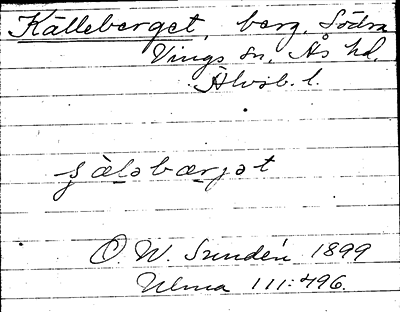 Källeberget, berg, Södra
Vings sn, Ås hd,
Älvsb. l.
O. W. Sundén 1899
Ulma 111:496.